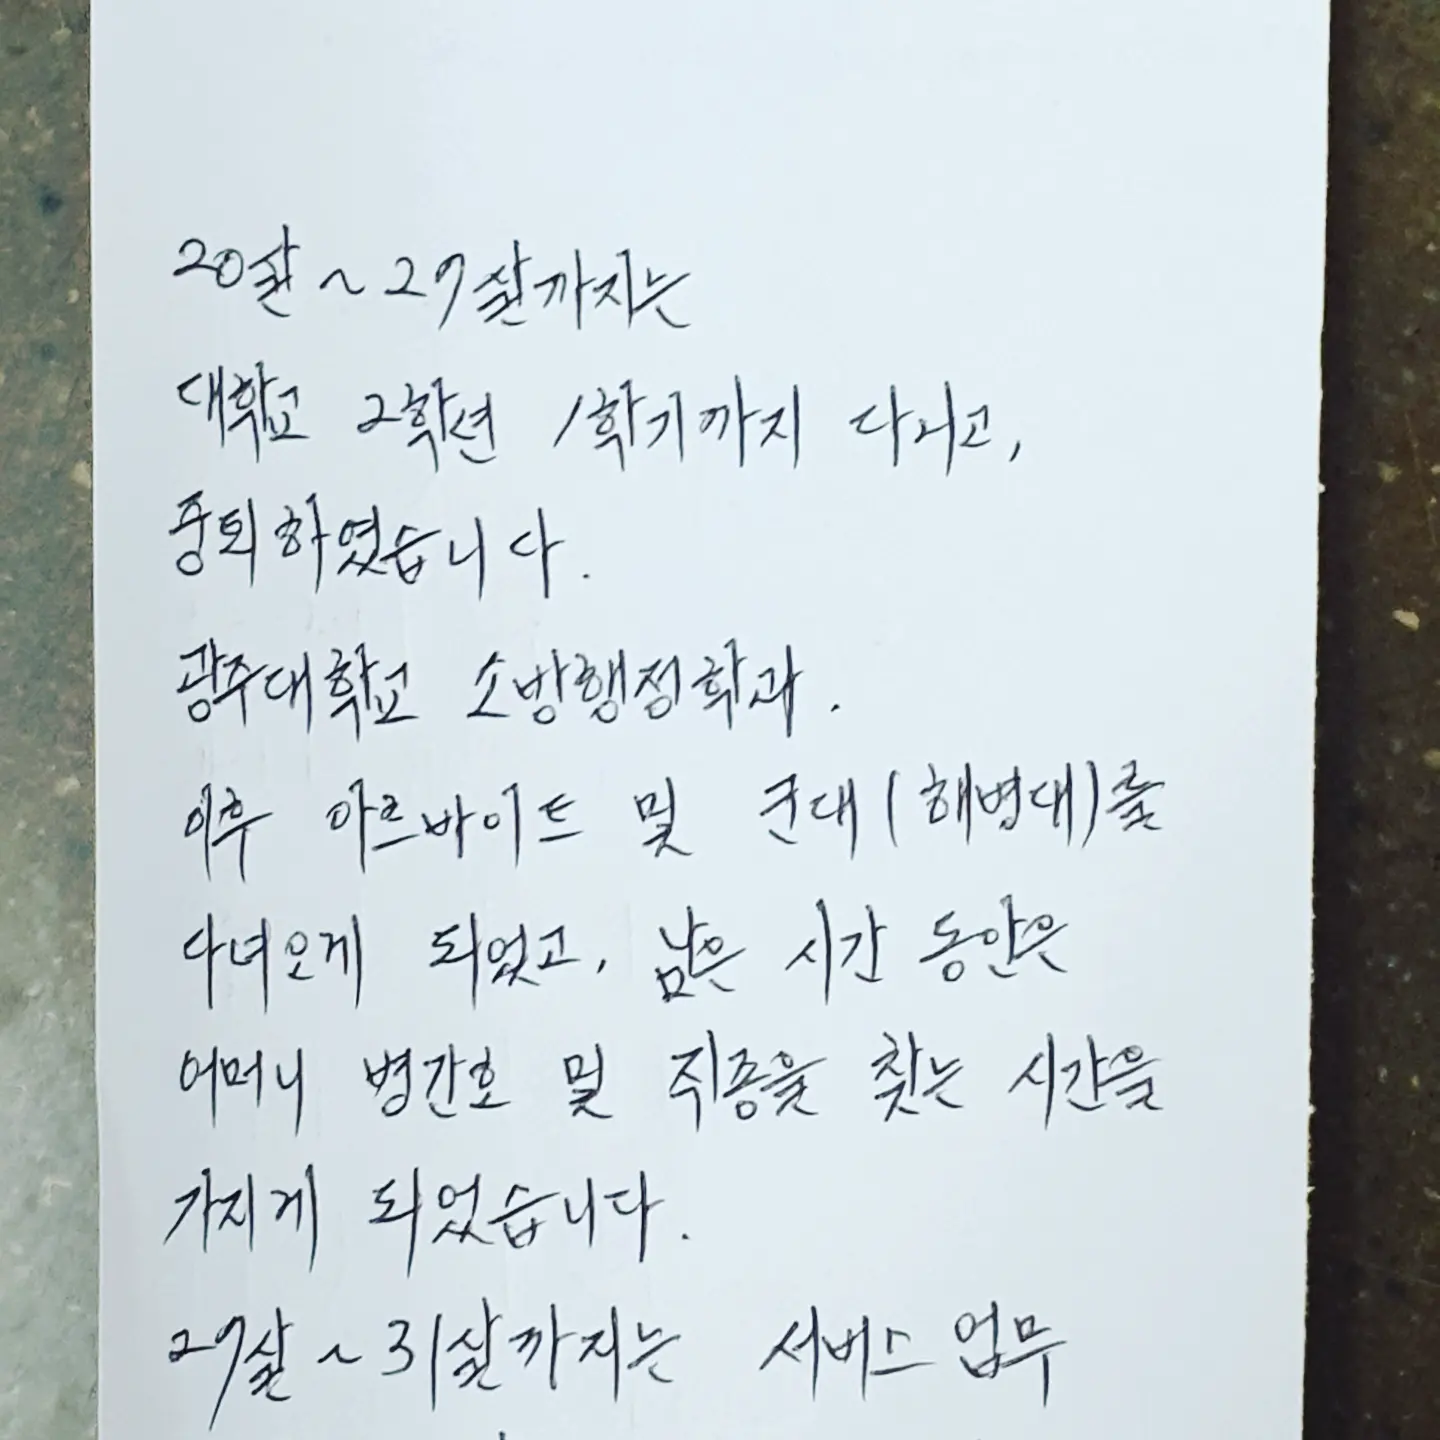 20살 ~ 27살까지는
대학교 2학년 1학기까지 다니고,
중퇴하였습니다.
광주대학교 소방행정학과.
이후 아르바이트 및 군대(해병대)를
다녀오게 되었고, 남은 시간 동안은
어머니 병간호 및 직종을 찾는 시간을
가지게 되었습니다.
27살 ~ 31살까지는 서비스 업무